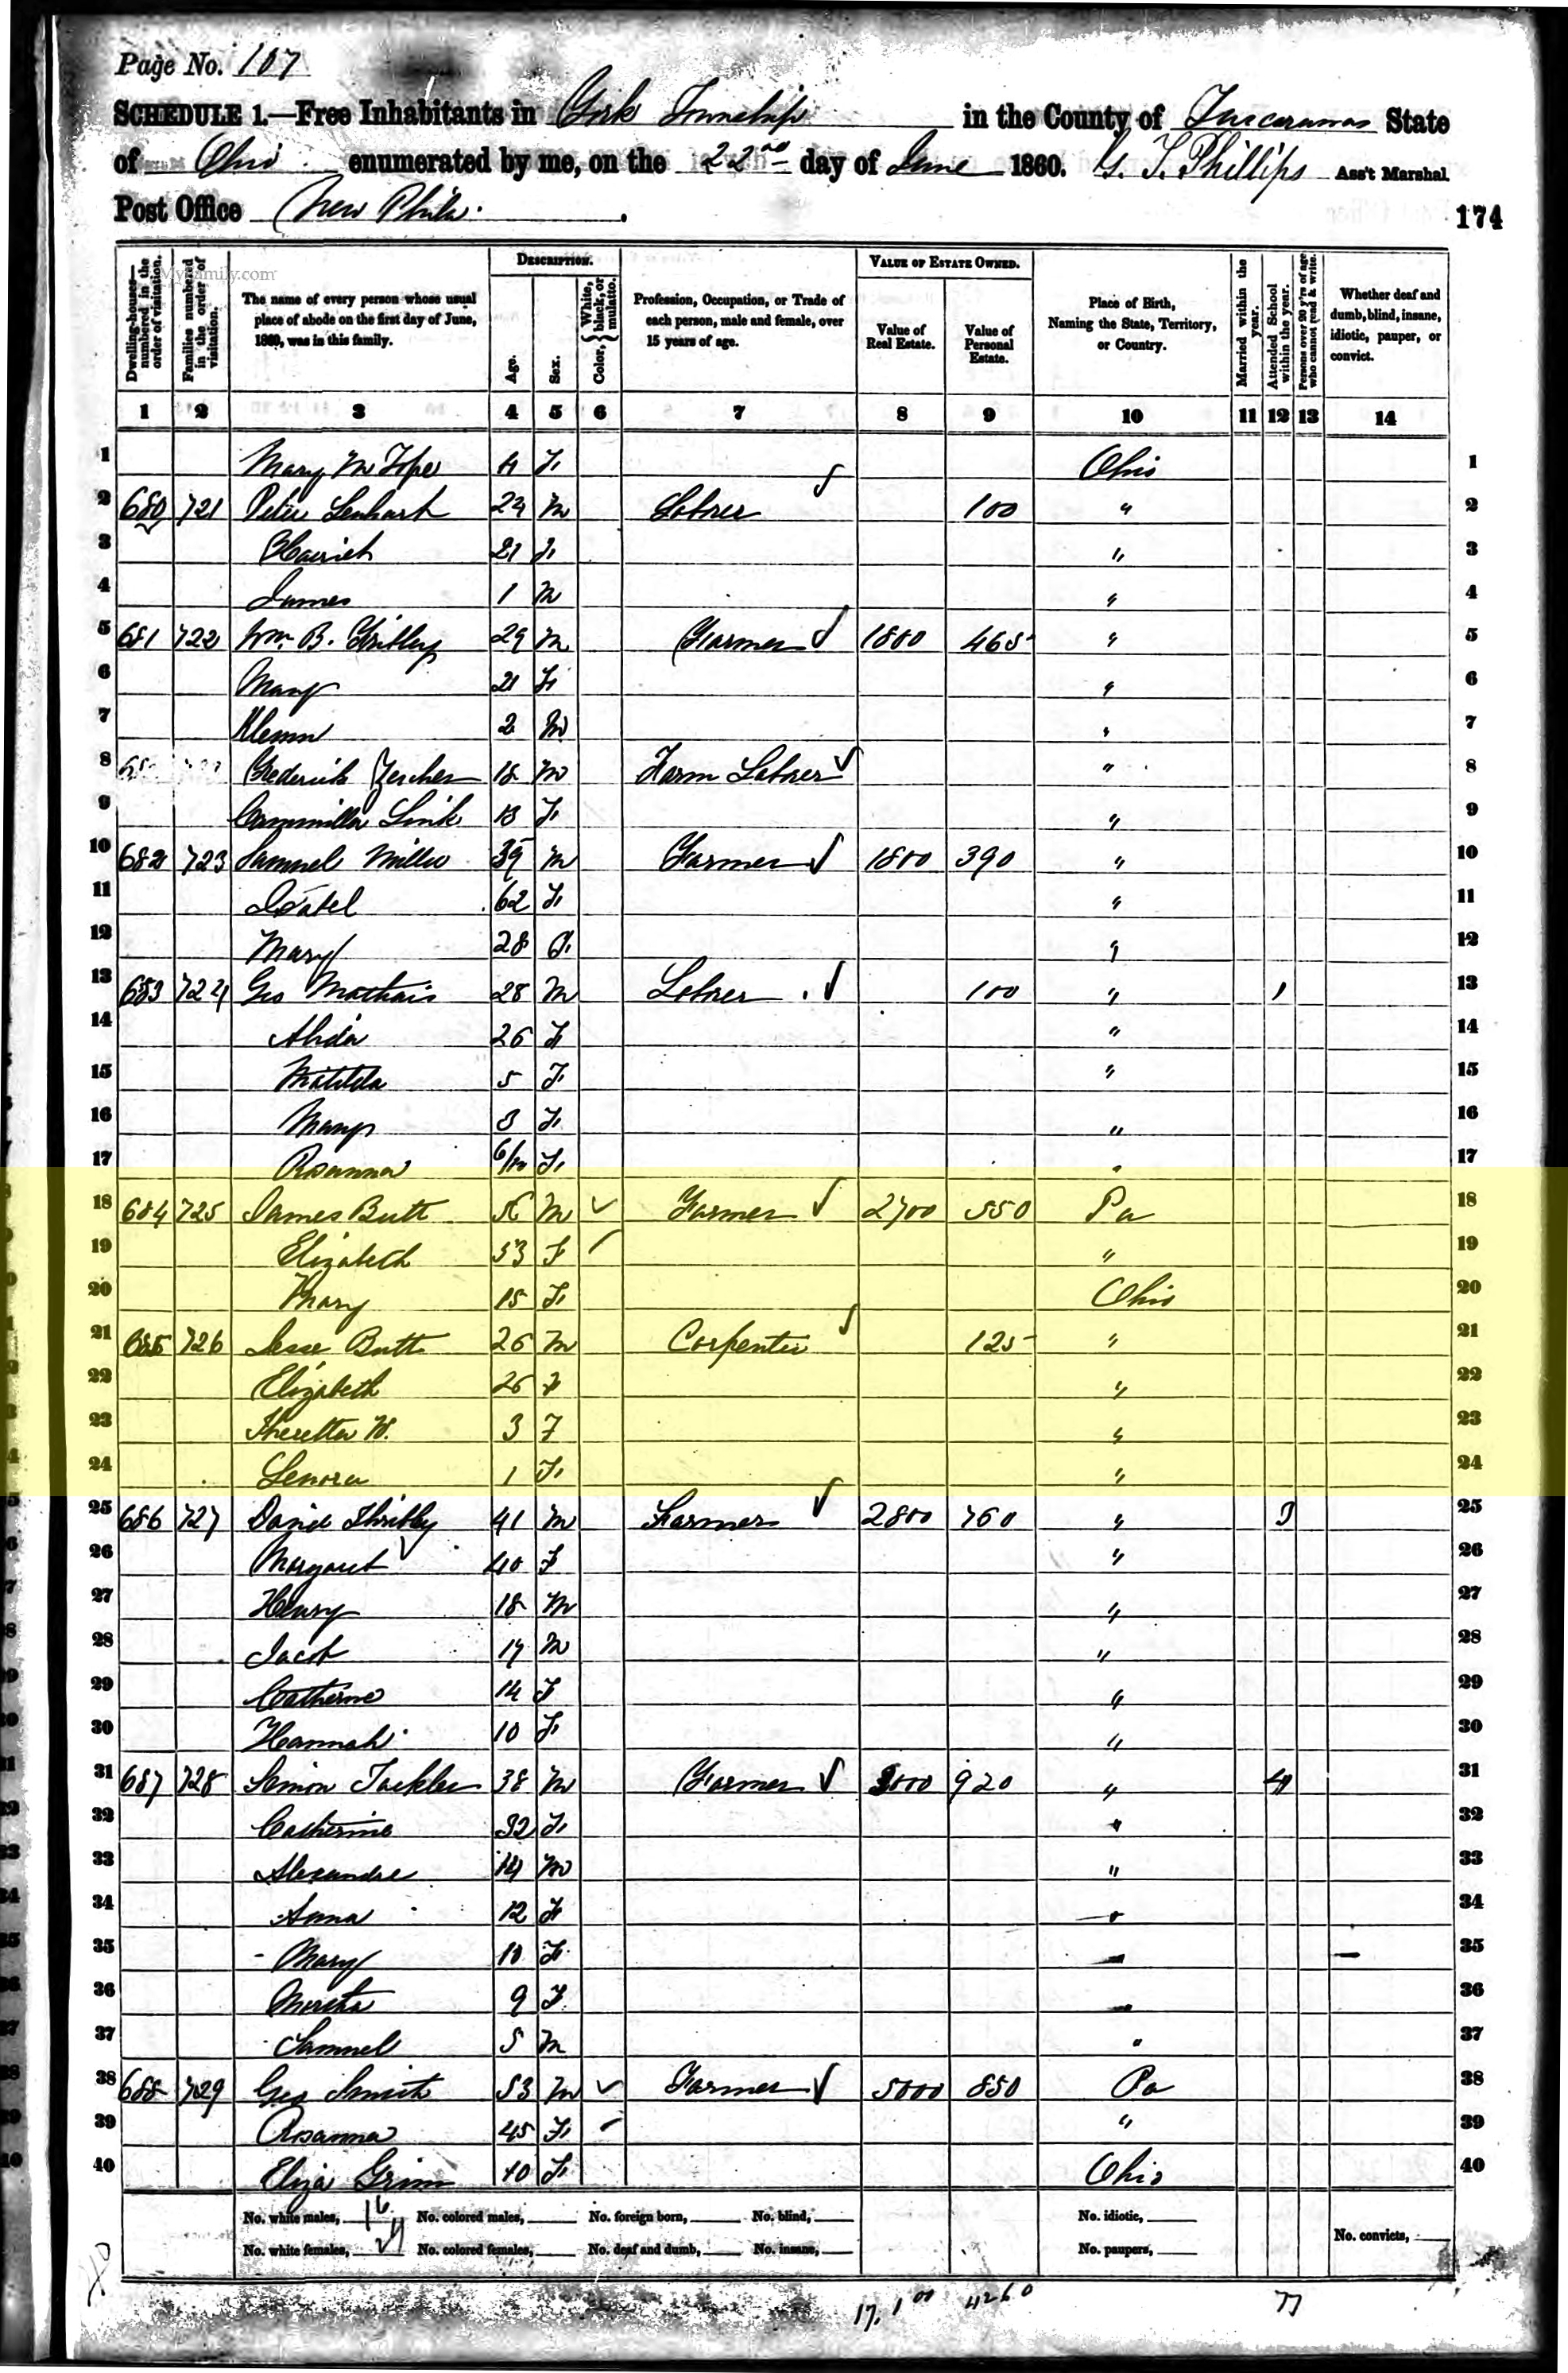 Page No. 107
SCHEDULE 1.—Free Inhabitants in York Township in the County of Tuscarawas State
of Ohio enumerated by me, on the 22nd day of June 1860. G. T. Phillips Ass't Marshal.
Post Office New Phila.
174
MyFamily.com
Dwelling-houses—numbered in the order of visitation.
Families numbered in the order of visitation.
The name of every person whose usual place of abode on the first day of June, 1860, was in this family.
DESCRIPTION.
Age.
Sex.
Color, { White, black, or mulatto.
Profession, Occupation, or Trade of each person, male and female, over 15 years of age.
VALUE OF ESTATE OWNED.
Value of Real Estate.
Value of Personal Estate.
Place of Birth, Naming the State, Territory, or Country.
Married within the year.
Attended School within the year.
Persons over 20 y'rs of age who cannot read & write.
Whether deaf and dumb, blind, insane, idiotic, pauper, or convict.
1 2 3 4 5 6 7 8 9 10 11 12 13 14
1 Mary M Tope 4 F Ohio 1
2 680 721 Peter Lenhart 24 M Labrer 100 " 2
3 21 F " 3
4 James 1 M " 4
5 681 722 Wm. B. 29 M Farmer 1800 465 " 5
6 Mary 21 F " 6
7 Klemn 2 M " 7
8 Frederick Zercher 18 M Farm Labrer " 8
9 Cammilla Link 13 F " 9
10 682 723 Samuel Miller 39 M Farmer 1800 390 " 10
11 Isabel 62 F " 11
12 Mary 28 F " 12
13 683 724 Geo Mathais 28 M Labrer 100 " 1 13
14 26 F " 14
15 Matilda 5 F " 15
16 Mary 3 F " 16
17 Rosanna 6/12 F " 17
18 684 725 James Butt 56 M Farmer 2700 550 Pa 18
19 Elizabeth 53 F " 19
20 Mary 15 F Ohio 20
21 685 726 Jesse Butt 26 M Carpenter 125 " 21
22 Elizabeth 26 F " 22
23 3 F " 23
24 Lenora 1 F " 24
25 686 727 David Shribly 41 M Farmer 2800 760 " 3 25
26 Margaret 40 F " 26
27 Henry 18 M " 27
28 Jacob 17 M " 28
29 Catherine 14 F " 29
30 Hannah 10 F " 30
31 687 728 Simon Fackler 38 M Farmer 3000 920 " 4 31
32 Catherine 32 F " 32
33 Alexander 14 M " 33
34 Anna 12 F " 34
35 Mary 10 F " 35
36 Martha 9 F " 36
37 Samuel 5 M " 37
38 688 729 Geo Smith 53 M Farmer 5000 850 Pa 38
39 Rosanna 45 F " 39
40 Eliza Grim 40 F Ohio 40
No. white males, 16 No. colored males, No. foreign born, No. blind, No. idiotic,
No. white females, 24 No. colored females, No. deaf and dumb, No. insane, No. paupers, No. convicts,
40
17,100 4260